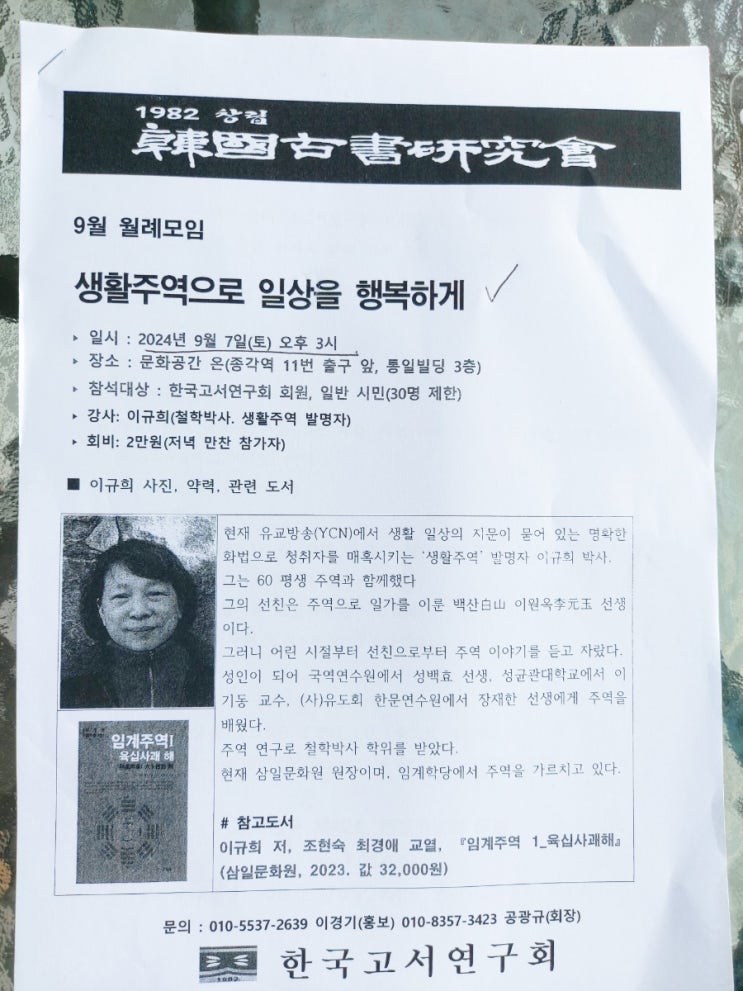 1982 창립
韓國古書研究會
9월 월례모임
생활주역으로 일상을 행복하게
▸ 일시 : 2024년 9월 7일(토) 오후 3시
▸ 장소 : 문화공간 온(종각역 11번 출구 앞, 통일빌딩 3층)
▸ 참석대상 : 한국고서연구회 회원, 일반 시민(30명 제한)
▸ 강사: 이규희(철학박사. 생활주역 발명자)
▸ 회비: 2만원(저녁 만찬 참가자)
■ 이규희 사진, 약력, 관련 도서
현재 유교방송(YCN)에서 생활 일상의 지문이 묻어 있는 명확한
화법으로 청취자를 매혹시키는 '생활주역' 발명자 이규희 박사.
그는 60 평생 주역과 함께했다
그의 선친은 주역으로 일가를 이룬 백산白山 이원옥李元玉 선생
이다.
그러니 어린 시절부터 선친으로부터 주역 이야기를 듣고 자랐다.
성인이 되어 국역연수원에서 성백효 선생, 성균관대학교에서 이
기동 교수, (사)유도회 한문연수원에서 장재한 선생에게 주역을
배웠다.
주역 연구로 철학박사 학위를 받았다.
현재 삼일문화원 원장이며, 임계학당에서 주역을 가르치고 있다.
임계주역1
육십사괘 해
# 참고도서
이규희 저, 조현숙 최경애 교열, 『임계주역 1_육십사괘해』
(삼일문화원, 2023. 값 32,000원)
문의 : 010-5537-2639 이경기(홍보) 010-8357-3423 공광규(회장)
1982
한국고서연구회